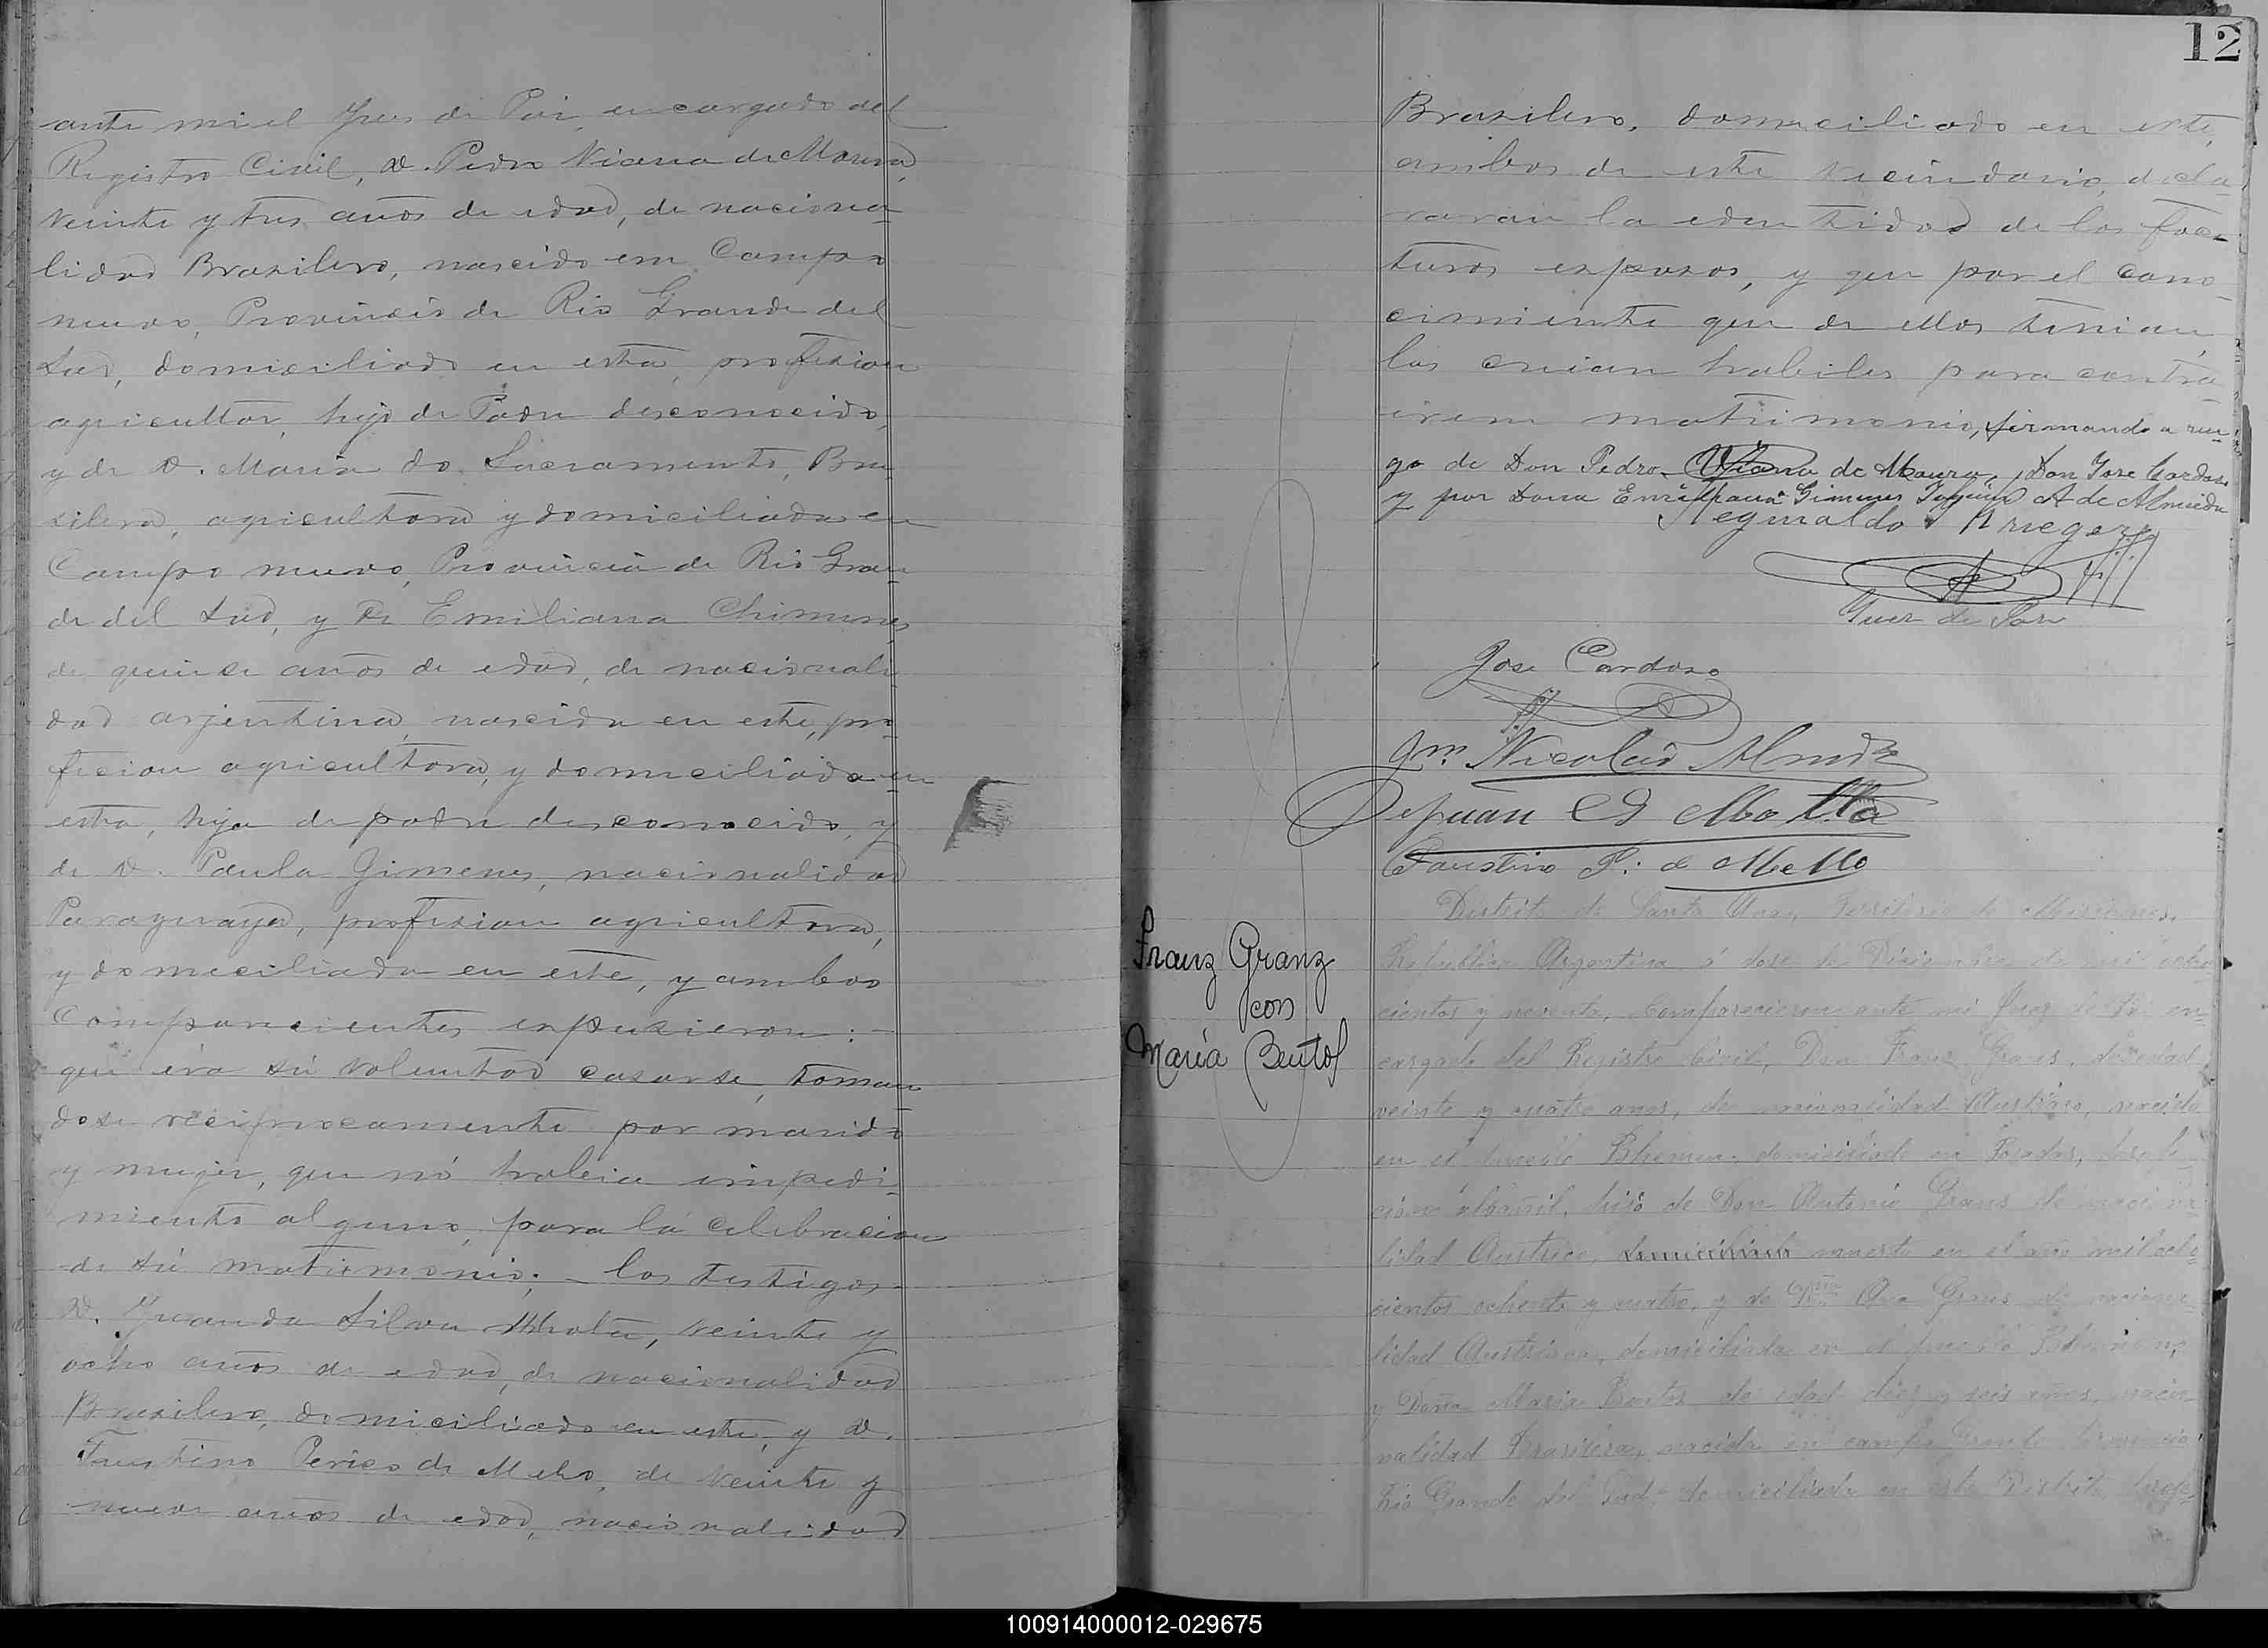 ante mi el Jues de Paz encargado del
Registro Civil, D. Pedro Viana de Moura,
veinte y tres años de edad, de naciona-
lidad Brasilero, nascido em Campo
nuevo, Provincia de Rio Grande del
Sud, domiciliado en esta, profesion
agricultor, hijo de Padre desconocido,
y de D. Maria do Sacramento, Bra-
silera, agricultora y domiciliada en
Campo nuevo, Provincia de Rio Gran-
de del Sud, y Da Emiliana Chimenes
de quince años de edad, de nacionali-
dad arjentina, nascida en este, pro-
fecion agricultora, y domiciliada en
esta, hija de padre desconocido, y
de D. Paula Gimenes, nacionalidad
Paraguaya, profesion agricultora,
y domeciliada en este, y ambos
Comparecientes expusieron:
que éra sú voluntad casarse, toman
dose reciprocamente por marido
y mujer, que nó habeia impedi-
miento alguno, para la celebracion
de sú matrimonio; – los testigos
D. Juan da Silva Mhota, veinte y
ocho años de edad, de nacionalidad
Brasilero, domiciliado en este, y D.
Faustino Perico de Melo, de veinte y
nueve años de edad, nacionalidad
12
Brasilero, domiciliado en este,
ambos de este vecindario, decla
raran la edentidad de los foe-
turos esposos, y que por el cono-
cimiento que de ellos tenian,
los creian habiles para contra-
erem matrimonio, firmando a rue-
go de Don Pedro Viana de Moura, Don Jose Cardoso
y por Dona Emiliana Gimenes A de Almeida
Reginaldo Krieger
Juez de Paz
Jose Cardoso
Nicolás
Juan S Motta
Faustino P. de Mello
Franz Granz
con
María Bentos
Distrito de Santa Ana, Territorio de Misiones,
Republica Argentina á dose de Diciembre de mil ocho
cientos y noventa, comparecieron ante mi Juez de Paz en-
cargado del Registro Civil, Don Franz Graus, de edad
veinte y cuatro anos, de nacionalidad Austriaco, nacido
en el pueblo Bhemen, domiciliado en Posadas, profe
cion albañil, hijo de Don Antonio Graus de naciona-
lidad Austrico, domiciliado muerto en el año mil ocho
cientos ochenta y cuatro, y de Dña Ana Graus de naciona-
lidad Austriaca, domiciliada en el pueblo
y Doña Maria Bentos de edad diez y seis años, nacio-
nalidad Brasilera, nacida en campo Grande Provincia
Rio Grande del Sud, domiciliada en este Distrito, profe-
100914000012-029675